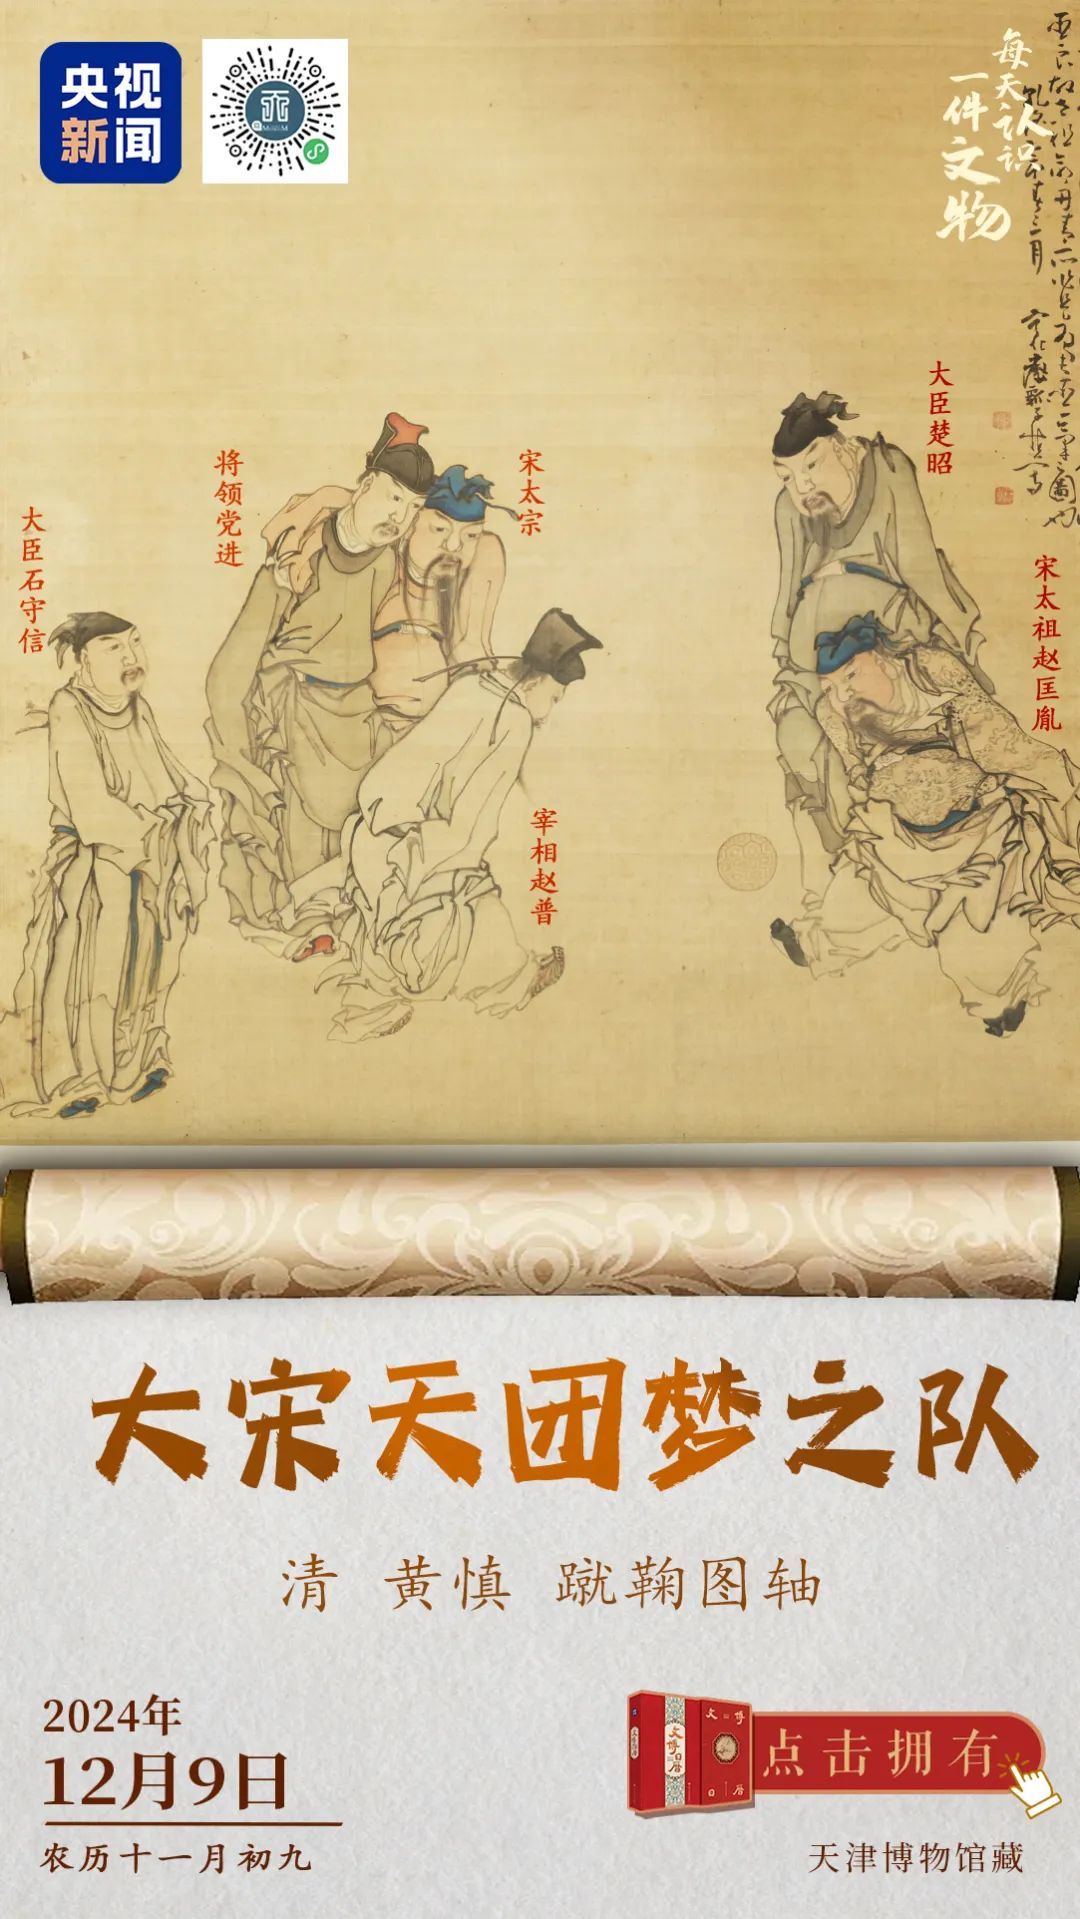 央视
新闻
每天认识
一件文物
大臣楚昭
宋太祖赵匡胤
宋太宗
将领党进
大臣石守信
宰相赵普
大宋天团梦之队
清 黄慎 蹴鞠图轴
2024年
12月9日
农历十一月初九
文博日历
文博
日历
点击拥有
天津博物馆藏